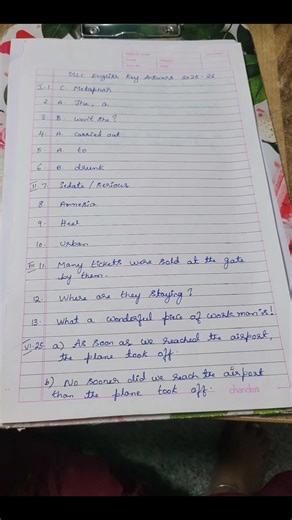 SSLC English Key Answers 2025-26
I. 1. C. Metaphor
2 A. The, a
3 B. won't she?
4. A carried out
5 A to
6 B drunk
II 7. Sedate / serious
8 Amnesia
9. Heel
10. Urban
III 11. Many tickets were sold at the gate
by them.
12. Where are they staying?
13. What a wonderful piece of workman is!
VI. 25. a) As soon as we reached the airport,
the plane took off.
b) No sooner did we reach the airport
than the plane took off.
chandra